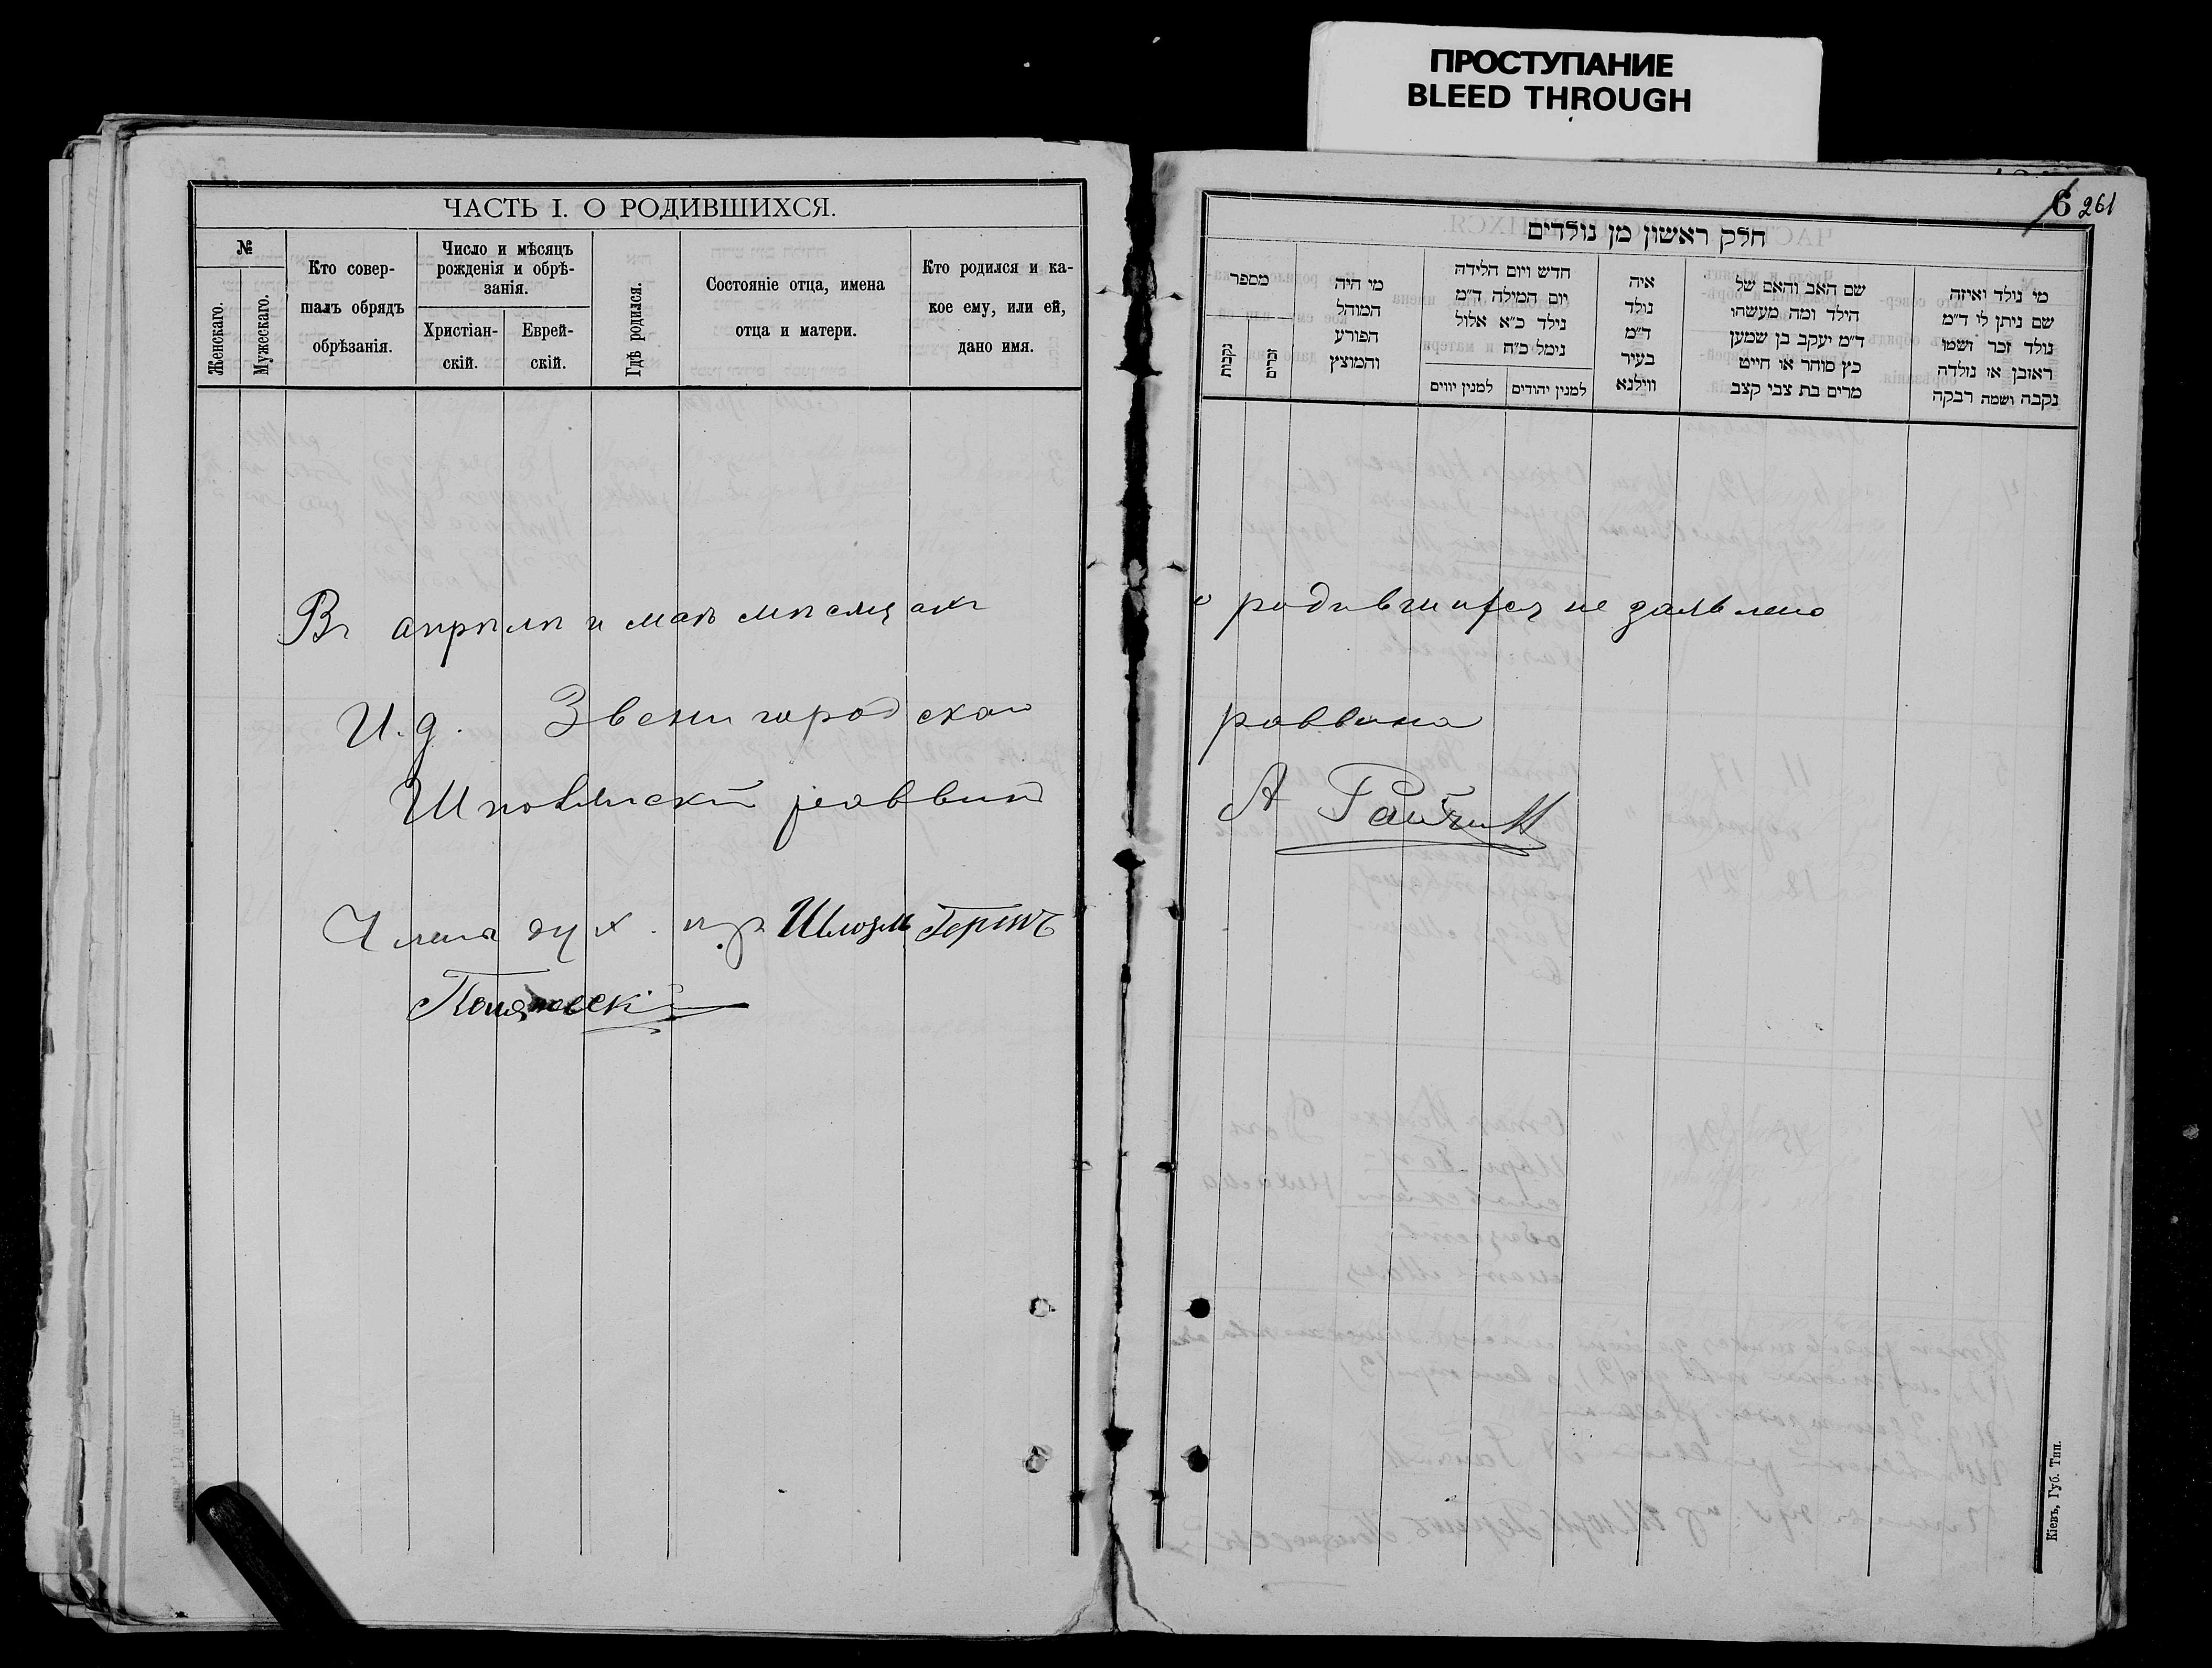 ПРОСТУПАНИЕ
BLEED THROUGH
ЧАСТЬ I. О РОДИВШИХСЯ.
№
Женскаго.
Мужескаго.
Кто совер-
шалъ обрядъ
обрѣзанія.
Число и мѣсяцъ
рожденія и обрѣ-
занія.
Христіан-
скій.
Еврей-
скій.
Гдѣ родился.
Состояніе отца, имена
отца и матери.
Кто родился и ка-
кое ему, или ей,
дано имя.
6 261
חלק ראשון מן נולדים
מספר
נקבות
זכרים
מי היה
המוהל
הפורע
והמוצץ
חדש ויום הלידה
יום המילה ד״מ
נילד כ״א אלול
נימל כ״ח
למנין יווים
למנין יהודים
איה
נולד
ד״מ
בעיר
ווילנא
שם האב והאם של
הילד ומה מעשהו
ד״מ יעקב בן שמען
כץ סוחר או חייט
מרים בת צבי קצב
מי נולד ואיזה
שם ניתן לי ד״מ
נולד זכר ושמו
ראובן או נולדה
נקבה ושמה רבקה
Въ апрѣлѣ и маѣ мѣсяцахъ о родившихся не заявлено
И. д. Звенигородскаго раввина
Шполянскій раввинъ А
Члена дух. пр. Шлозм Герш
Кіевъ, Губ. Тип.